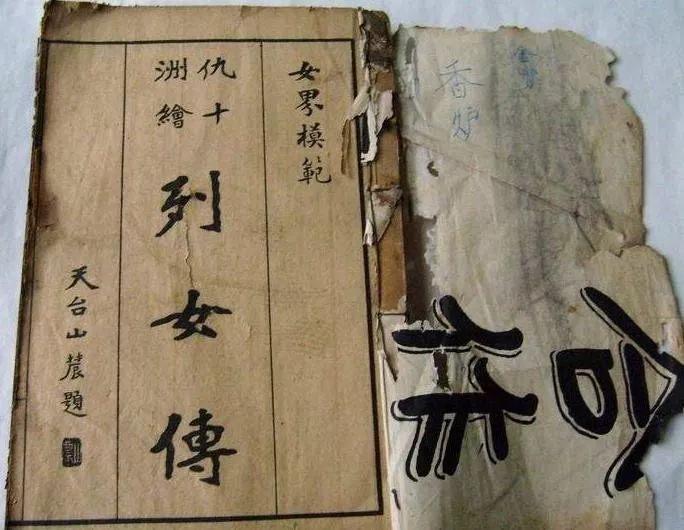 女界模範
仇十
洲繪
列女傳
天台山農題
香炉